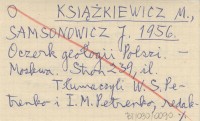 O KSIĄŻKIEWICZ M.,
SAMSONOWICZ J. 1956.
Oczerk geołogii Polszi. –
Moskwa. Stron 239, il.
Tłumaczyli W. S. Pe-
trenko i I. M. Petrenko, redak-